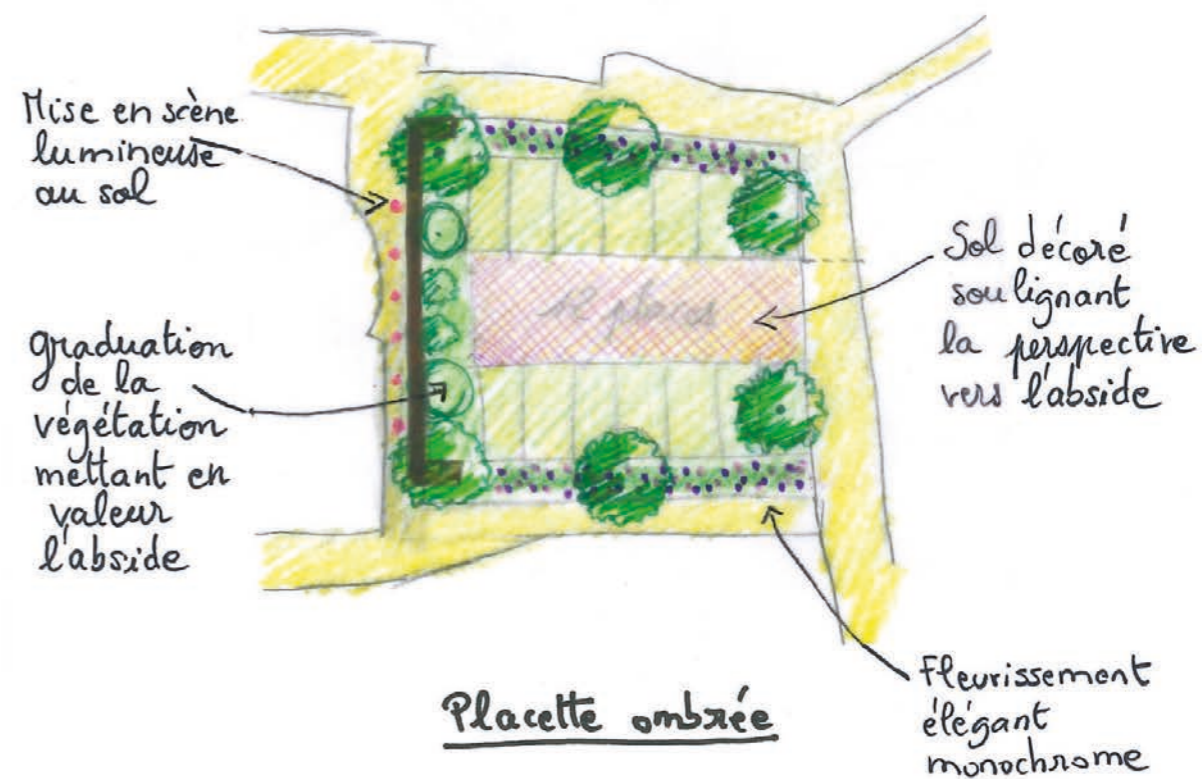 Mise en scène
lumineuse
au sol
graduation
de la
végétation
mettant en
valeur
l'abside
12 places
Sol décoré
soulignant
la perspective
vers l'abside
Fleurissement
élégant
monochrome
Placette ombrée